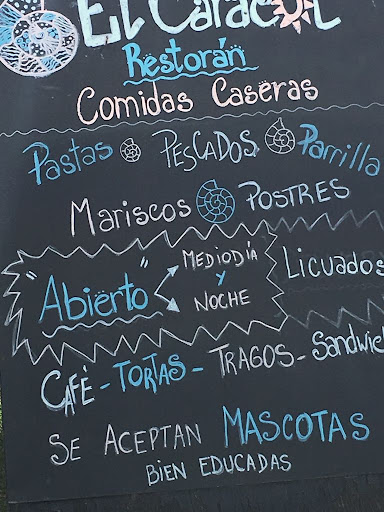 El Caracol
Restorán
Comidas Caseras
Pastas PESCADOS Parrilla
Mariscos POSTRES
"Abierto" MEDIODÍA Y NOCHE
Licuados
CAFÈ - TORTAS - TRAGOS - Sandwic
SE ACEPTAN MASCOTAS
BIEN EDUCADAS